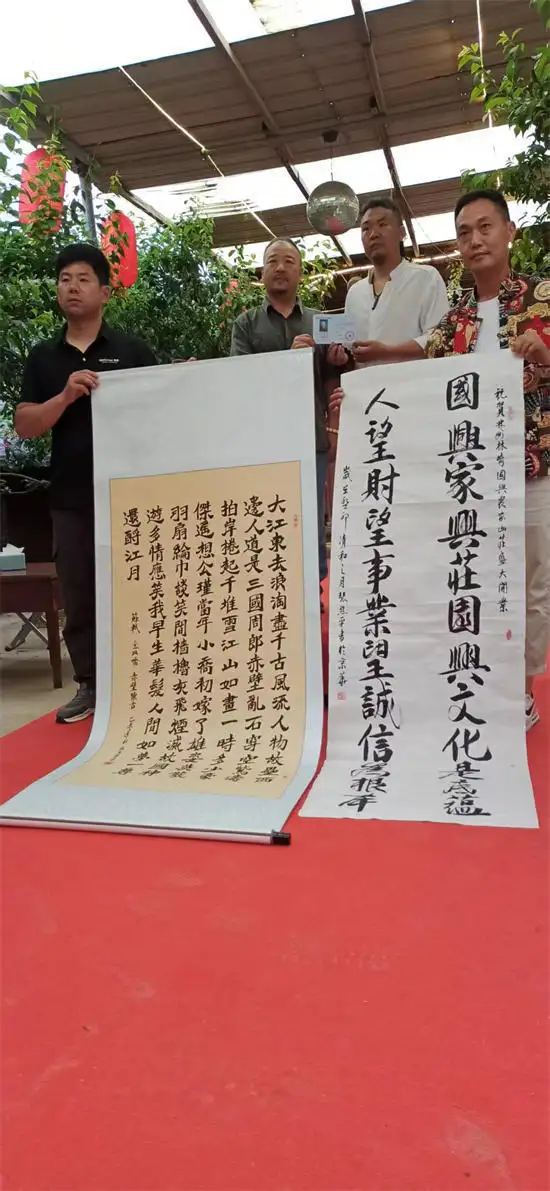 國興家興莊園興文化是底蘊
人望財望事業望誠信為根本
歲在癸卯清和之月
大江東去浪淘盡千古風流人物故壘西
邊人道是三國周郎赤壁亂石穿空驚濤
拍岸捲起千堆雪江山如畫一時多少豪
傑遙想公瑾當年小喬初嫁了雄姿英發
羽扇綸巾談笑間檣櫓灰飛煙滅故國神
遊多情應笑我早生華髮人間如夢一尊
還酹江月
蘇軾 念奴嬌 赤壁懷古